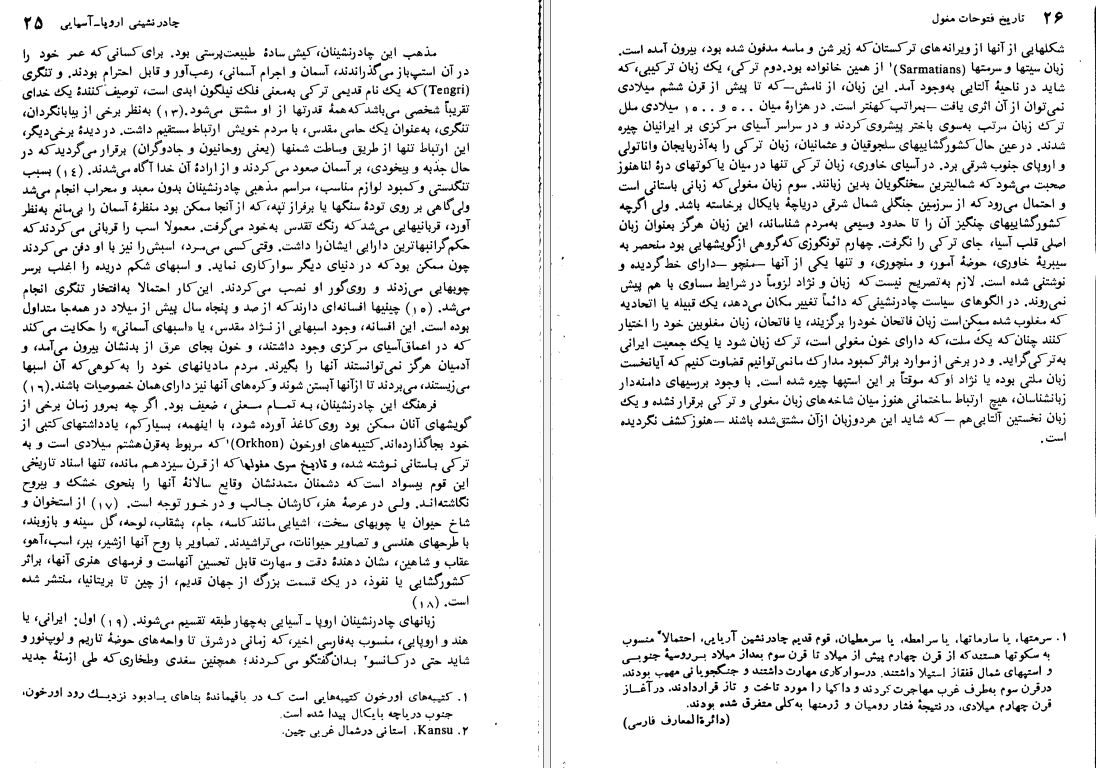 چادرنشینی اروپا-آسیایی ۲۵
مذهب این چادرنشینان، کیش سادهٔ طبیعت‌پرستی بود. برای کسانی که عمر خود را
در آن استپ‌باز می‌گذراندند، آسمان و اجرام آسمانی، رعب‌آور و قابل احترام بودند. و تنگری
(Tengri) که یک نام قدیمی ترکی به‌معنی فلک نیلگون ابدی است، توصیف کنندهٔ یک خدای
تقریباً شخصی می‌باشد که همهٔ قدرتها از او مشتق می‌شود. (۱۳) به‌نظر برخی از بیابانگردان،
تنگری، به‌عنوان یک حامی مقدس، با مردم خویش ارتباط مستقیم داشت. در دیدهٔ برخی‌دیگر،
این ارتباط تنها از طریق وساطت شمنها (یعنی روحانیون و جادوگران) برقرار می‌گردید که در
حال جذبه و بیخودی، بر آسمان صعود می‌کردند و از ارادهٔ آن خدا آگاه می‌شدند. (۱۴) بسبب
تنگدستی و کمبود لوازم مناسب، مراسم مذهبی چادرنشینان بدون معبد و محراب انجام می‌شد
ولی‌گاهی بر روی تودهٔ سنگها یا برفراز تپه، که از آنجا ممکن بود منظرهٔ آسمان را بی‌مانع به‌نظر
آورد، قربانیهایی می‌شد که رنگ تقدس به‌خود می‌گرفت. معمولا اسب را قربانی می‌کردند که
حکم‌گرانبهاترین دارایی ایشان را داشت. وقتی کسی می‌مرد، اسبش را نیز با او دفن می‌کردند
چون ممکن بود که در دنیای دیگر سوارکاری نماید. و اسبهای شکم دریده را اغلب برسر
چوبهایی می‌زدند و روی‌گور او نصب می‌کردند. این‌کار احتمالا به‌افتخار تنگری انجام
می‌شد. (۱۵) چینیها افسانه‌ای دارند که از صد و پنجاه سال پیش از میلاد در همه‌جا متداول
بوده است. این افسانه، وجود اسبهایی از نژاد مقدس، یا «اسبهای آسمانی» را حکایت می‌کند
که در اعماق‌آسیای مرکزی وجود داشتند، و خون بجای عرق از بدنشان بیرون می‌آمد، و
آدمیان هرگز نمی‌توانستند آنها را بگیرند. مردم مادیانهای خود را به‌کوهی که آن اسبها
می‌زیستند، می‌بردند تا ازآنها آبستن شوند و کره‌های آنها نیز دارای همان خصوصیات باشند. (۱۶)
فرهنگ این چادرنشینان، به تمام معنی، ضعیف بود. اگر چه بمرور زمان برخی از
گویشهای آنان ممکن بود روی کاغذ آورده شود، با اینهمه، بسیارکم، یادداشتهای کتبی از
خود بجا گذارده‌اند. کتیبه‌های اورخون (Orkhon)۱ که مربوط به‌قرن‌هشتم میلادی است و به
ترکی باستانی نوشته شده، و تاریخ سری مغولها که از قرن سیزدهم مانده، تنها اسناد تاریخی
این قوم بیسواد است که دشمنان متمدنشان وقایع سالانهٔ آنها را بنحوی خشک و بیروح
نگاشته‌اند. ولی در عرصهٔ هنر، کارشان جالب و در خور توجه است. (۱۷) از استخوان و
شاخ حیوان یا چوبهای سخت، اشیایی مانند کاسه، جام، بشقاب، لوحه، گل سینه و بازوبند،
با طرحهای هندسی و تصاویر حیوانات، می‌تراشیدند. تصاویر با روح آنها ازشیر، ببر، اسب، آهو،
عقاب و شاهین، نشان دهندهٔ دقت و مهارت قابل تحسین آنهاست و فرمهای هنری آنها، براثر
کشورگشایی یا نفوذ، در یک قسمت بزرگ از جهان قدیم، از چین تا بریتانیا، منتشر شده
است. (۱۸)
زبانهای چادرنشینان اروپا ـ آسیایی به‌چهار طبقه تقسیم می‌شوند. (۱۹) اول: ایرانی، یا
هند و اروپایی، منسوب به‌فارسی اخیر، که زمانی درشرق تا واحه‌های حوضهٔ تاریم و لوپ‌نور و
شاید حتی در کانسو۲ بدان گفتگو می‌کردند؛ همچنین سغدی وطخاری که طی ازمنهٔ جدید
۱. کتیبه‌های اورخون کتیبه‌هایی است که در باقیماندهٔ بناهای یادبود نزدیک رود اورخون،
جنوب دریاچه بایکال پیدا شده است.
۲. Kansu، استانی درشمال غربی چین.
۲۶ تاریخ فتوحات مغول
شکلهایی از آنها از ویرانه‌های ترکستان که زیر شن و ماسه مدفون شده بود، بیرون آمده است.
زبان سیتها و سرمتها (Sarmatians)۱ از همین خانواده بود. دوم ترکی، یک زبان ترکیبی، که
شاید در ناحیهٔ آلتایی به‌وجود آمد. این زبان، از نامش — که تا پیش از قرن ششم میلادی
نمی‌توان از آن اثری یافت — بمراتب کهنتر است. در هزارهٔ میان ۵۰۰ و ۱۵۰۰ میلادی ملل
ترک زبان مرتب به‌سوی باختر پیشروی کردند و در سراسر آسیای مرکزی بر ایرانیان چیره
شدند. در عین حال کشورگشاییهای سلجوقیان و عثمانیان، زبان ترکی را به‌آذربایجان واناتولی
و اروپای جنوب شرقی برد. در آسیای خاوری، زبان ترکی تنها در میان یاکوتهای درهٔ لناهنوز
صحبت می‌شود که شمالیترین سخنگویان بدین زبانند. سوم زبان مغولی که زبانی باستانی است
و احتمال می‌رود که از سرزمین جنگلی شمال شرقی دریاچهٔ بایکال برخاسته باشد. ولی اگرچه
کشورگشاییهای چنگیز آن را تا حدود وسیعی به‌مردم شناساند، این زبان هرگز بعنوان زبان
اصلی قلب آسیا، جای ترکی را نگرفت. چهارم تونگوزی که گروهی ازگویشهایی بود منحصر به
سیبریهٔ خاوری، حوضهٔ آمور، و منچوری، و تنها یکی از آنها — منچو — دارای خط گردیده و
نوشتنی شده است. لازم به‌تصریح نیست که زبان و نژاد لزوماً در شرایط مساوی با هم پیش
نمی‌روند. در الگوهای سیاست چادرنشینی که دائماً تغییر مکان می‌دهد، یک قبیله یا اتحادیه
که مغلوب شده ممکن‌است زبان فاتحان خودرا برگزیند، یا فاتحان، زبان مغلوبین خود را اختیار
کنند چنان که یک ملت، که دارای خون مغولی است، ترک زبان شود یا یک جمعیت ایرانی
به‌ترکی گراید. و در برخی از موارد براثر کمبود مدارک مانمی‌توانیم قضاوت کنیم که آیانخست
زبان ملتی بوده یا نژاد او که موقتاً بر این استپها چیره شده است. با وجود بررسیهای دامنه‌دار
زبانشناسان، هیچ ارتباط ساختمانی هنوز میان شاخه‌های زبان مغولی و ترکی برقرار نشده و یک
زبان نخستین آلتایی‌هم — که شاید این هردوزبان ازآن مشتق‌شده باشند — هنوز کشف نگردیده
است.
۱. سرمتها، یا سارماتها، یا سرامطه، یا سرمطیان، قوم قدیم چادرنشین آریایی، احتمالاً منسوب
به سکوتها هستند که از قرن چهارم پیش از میلاد تا قرن سوم بعداز میلاد بر روسیهٔ جنوبی
و استپهای شمال قفقاز استیلا داشتند. درسوارکاری مهارت داشتند و جنگجویانی مهیب بودند.
درقرن سوم به‌طرف غرب مهاجرت کردند و داکیا را مورد تاخت و تاز قراردادند. درآغاز
قرن چهارم میلادی، درنتیجهٔ فشار رومیان و ژرمنها به‌کلی متفرق شده بودند.
(دائرةالمعارف فارسی)